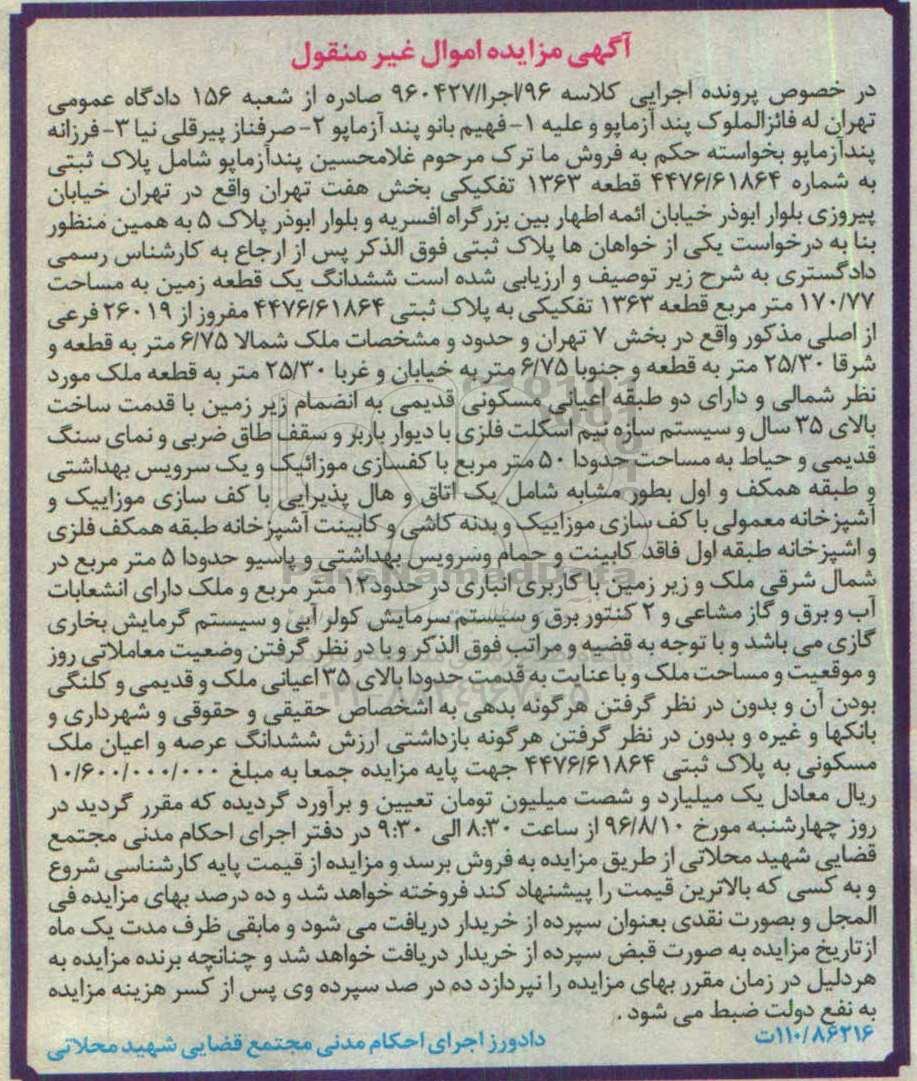 آگهی مزایده اموال غیر منقول
در خصوص پرونده اجرایی کلاسه ۹۶/اجرا/۹۶۰۴۲۷ صادره از شعبه ۱۵۶ دادگاه عمومی
تهران له فائزالملوک پند آزماپو و علیه ۱-فهیم بانو پند آزماپو ۲- صرفناز پیرقلی نیا ۳-فرزانه
پندآزماپو بخواسته حکم به فروش ما ترک مرحوم غلامحسین پندآزماپو شامل پلاک ثبتی
به شماره ۴۴۷۶/۶۱۸۶۴ قطعه ۱۳۶۳ تفکیکی بخش هفت تهران واقع در تهران خیابان
پیروزی بلوار ابوذر خیابان ائمه اطهار بین بزرگراه افسریه و بلوار ابوذر پلاک ۵ به همین منظور
بنا به درخواست یکی از خواهان ها پلاک ثبتی فوق الذکر پس از ارجاع به کارشناس رسمی
دادگستری به شرح زیر توصیف و ارزیابی شده است ششدانگ یک قطعه زمین به مساحت
۱۷۰/۷۷ متر مربع قطعه ۱۳۶۳ تفکیکی به پلاک ثبتی ۴۴۷۶/۶۱۸۶۴ مفروز از ۲۶۰۱۹ فرعی
از اصلی مذکور واقع در بخش ۷ تهران و حدود و مشخصات ملک شمالا ۶/۷۵ متر به قطعه و
شرقا ۲۵/۳۰ متر به قطعه و جنوبا ۶/۷۵ متر به خیابان و غربا ۲۵/۳۰ متر به قطعه ملک مورد
نظر شمالی و دارای دو طبقه اعیانی مسکونی قدیمی به انضمام زیر زمین با قدمت ساخت
بالای ۳۵ سال و سیستم سازه نیم اسکلت فلزی با دیوار باربر و سقف طاق ضربی و نمای سنگ
قدیمی و حیاط به مساحت حدودا ۵۰ متر مربع با کفسازی موزائیک و یک سرویس بهداشتی
و طبقه همکف و اول بطور مشابه شامل یک اتاق و هال پذیرایی با کف سازی موزاییک و
آشپزخانه معمولی با کف سازی موزاییک و بدنه کاشی و کابینت آشپزخانه طبقه همکف فلزی
و اشپزخانه طبقه اول فاقد کابینت و حمام وسرویس بهداشتی و پاسیو حدودا ۵ متر مربع در
شمال شرقی ملک و زیر زمین با کاربری انباری در حدود۱۲ متر مربع و ملک دارای انشعابات
آب و برق و گاز مشاعی و ۲ کنتور برق و سیستم سرمایش کولر آبی و سیستم گرمایش بخاری
گازی می باشد و با توجه به قضیه و مراتب فوق الذکر و با در نظر گرفتن وضعیت معاملاتی روز
و موقعیت و مساحت ملک و با عنایت به قدمت حدودا بالای ۳۵ اعیانی ملک و قدیمی و کلنگی
بودن آن و بدون در نظر گرفتن هرگونه بدهی به اشخصاص حقیقی و حقوقی و شهرداری و
بانکها و غیره و بدون در نظر گرفتن هرگونه بازداشتی ارزش ششدانگ عرصه و اعیان ملک
مسکونی به پلاک ثبتی ۴۴۷۶/۶۱۸۶۴ جهت پایه مزایده جمعا به مبلغ ۱۰/۶۰۰/۰۰۰/۰۰۰
ریال معادل یک میلیارد و شصت میلیون تومان تعیین و برآورد گردیده که مقرر گردید در
روز چهارشنبه مورخ ۹۶/۸/۱۰ از ساعت ۸:۳۰ الی ۹:۳۰ در دفتر اجرای احکام مدنی مجتمع
قضایی شهید محلاتی از طریق مزایده به فروش برسد و مزایده از قیمت پایه کارشناسی شروع
و به کسی که بالاترین قیمت را پیشنهاد کند فروخته خواهد شد و ده درصد بهای مزایده فی
المجل و بصورت نقدی بعنوان سپرده از خریدار دریافت می شود و مابقی ظرف مدت یک ماه
ازتاریخ مزایده به صورت قبض سپرده از خریدار دریافت خواهد شد و چنانچه برنده مزایده به
هردلیل در زمان مقرر بهای مزایده را نپردازد ده در صد سپرده وی پس از کسر هزینه مزایده
به نفع دولت ضبط می شود .
۱۱۰/۸۶۲۱۶ت
دادورز اجرای احکام مدنی مجتمع قضایی شهید محلاتی
ParsNamadData